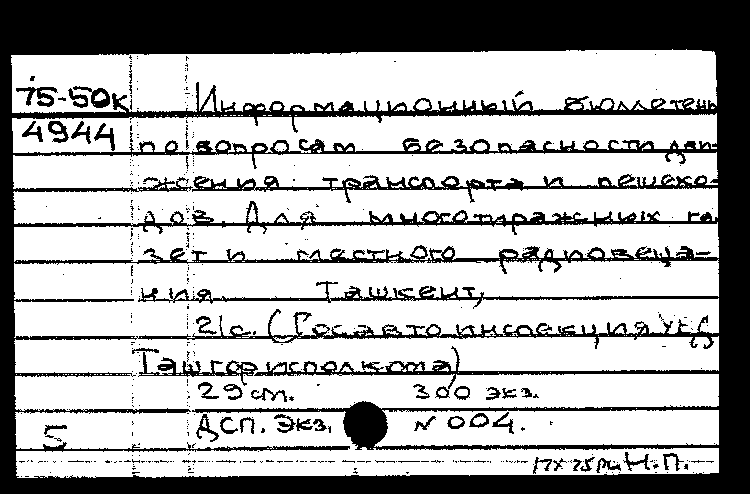 75-50к Информационный бюллетень
4944 по вопросам безопасности дви-
жения транспорта и пешехо-
дов. Для многотиражных га-
зет и местного радиовеща-
ния. Ташкент,
21с. (Госавтоинспекция УВД
Ташгорисполкома)
29 см. 300 экз.
5 ДСП. Экз. N 004.
Н.П.